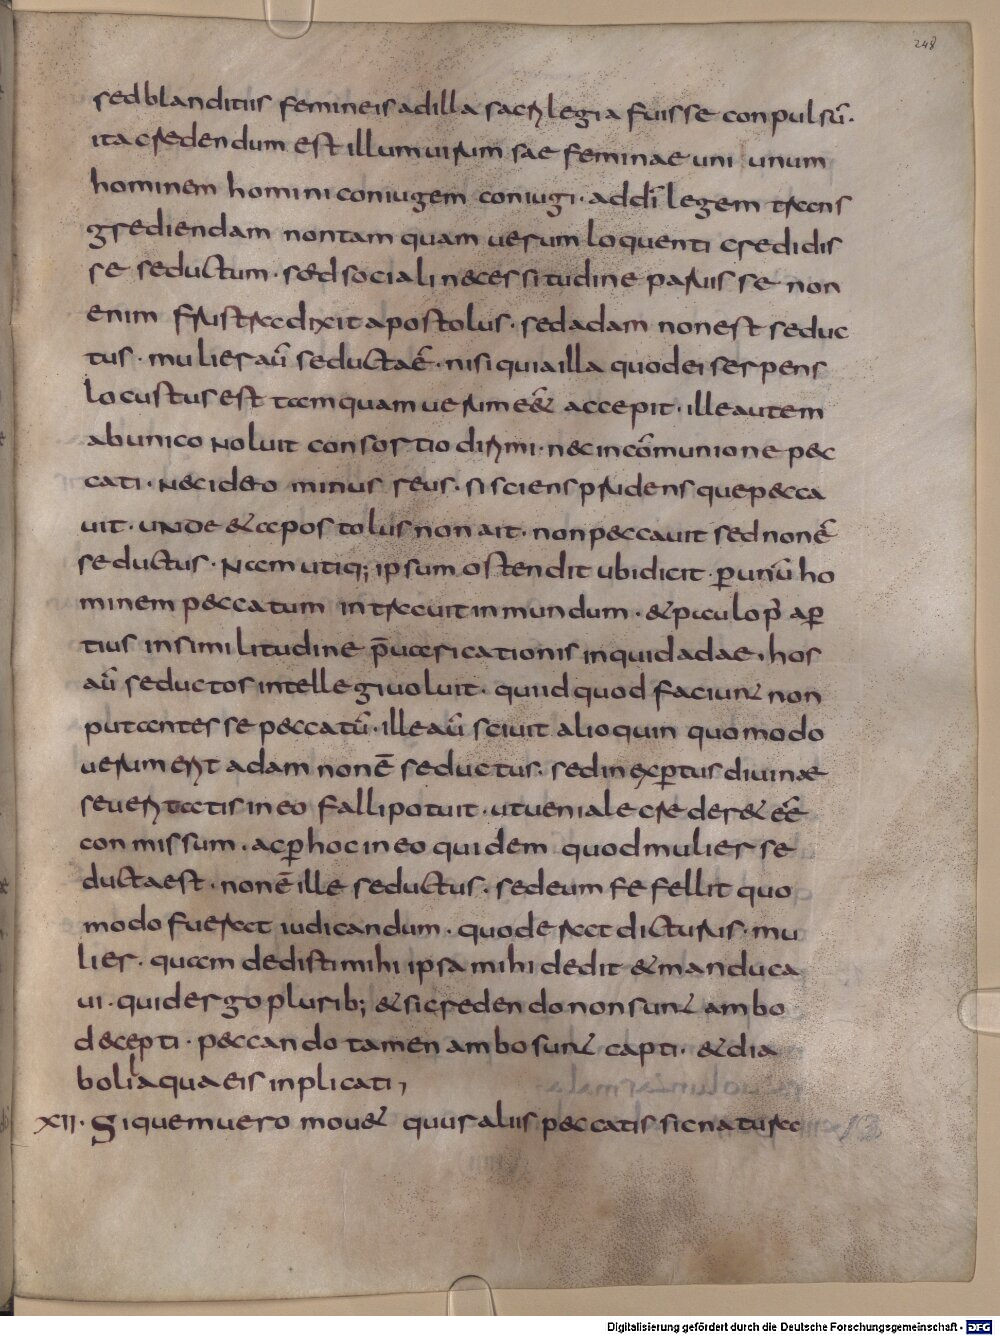 248
sed blanditiis femineis ad illa sacrilegia fuisse conpulsū·
ita credendum est illum uirum sae feminae uni unum
hominem homini coniugem coniugi· ad dī legem trans
grediendam non tam quam uerum loquenti credidis
se seductum· sed sociali necessitudine paruisse non
enim frustra dixit apostolus· sed adam non est seduc
tus· mulier aū seducta ē· nisi quia illa quod ei serpens
locustus est tamquam uerum eēt accepit· ille autem
ab unico noluit consortio dirimi· nec in cōmunione pec
cati· nec ideo minus reus· si sciens prudensque pecca
uit· unde et apostolus non ait· non peccauit sed non ē
seductus· nam utiq; ipsum ostendit ubi dicit· p̄ unū ho
minem peccatum intrauit in mundum· et paulo p̄ ap̄
tius in similitudine p̄uaricationis inquid adae· hos
aū seductos intellegi uoluit· qui id quod faciunt non
putantes se peccatū· ille aū sciuit alioquin quomodo
uerum erit adam non ē seductus· sed inexp̄tus diuinae
seueritatis in eo falli potuit· ut ueniale crederet eēe
conmissum· ac p̄ hoc in eo quidem quod mulier se
ducta est· non ē ille seductus· sed eum fefellit quo
modo fuerat iudicandum· quod erat dicturus· mu
lier· quam dedisti mihi ipsa mihi dedit et manduca
ui· quid ergo plurib; et si credendo non sunt ambo
decepti· peccando tamen ambo sunt capti· et dia
boli laquaeis inplicati,
XII· Si quem uero mouet quur aliis peccatis sic natura
Digitalisierung gefördert durch die Deutsche Forschungsgemeinschaft - DFG